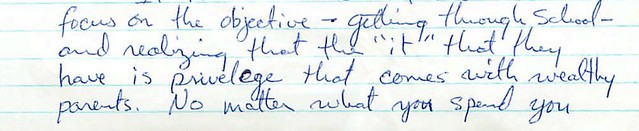 focus on the objective - getting through School -
and realizing that the "it" that they
have is privelege that comes with wealthy
parents. No matter what you spend you